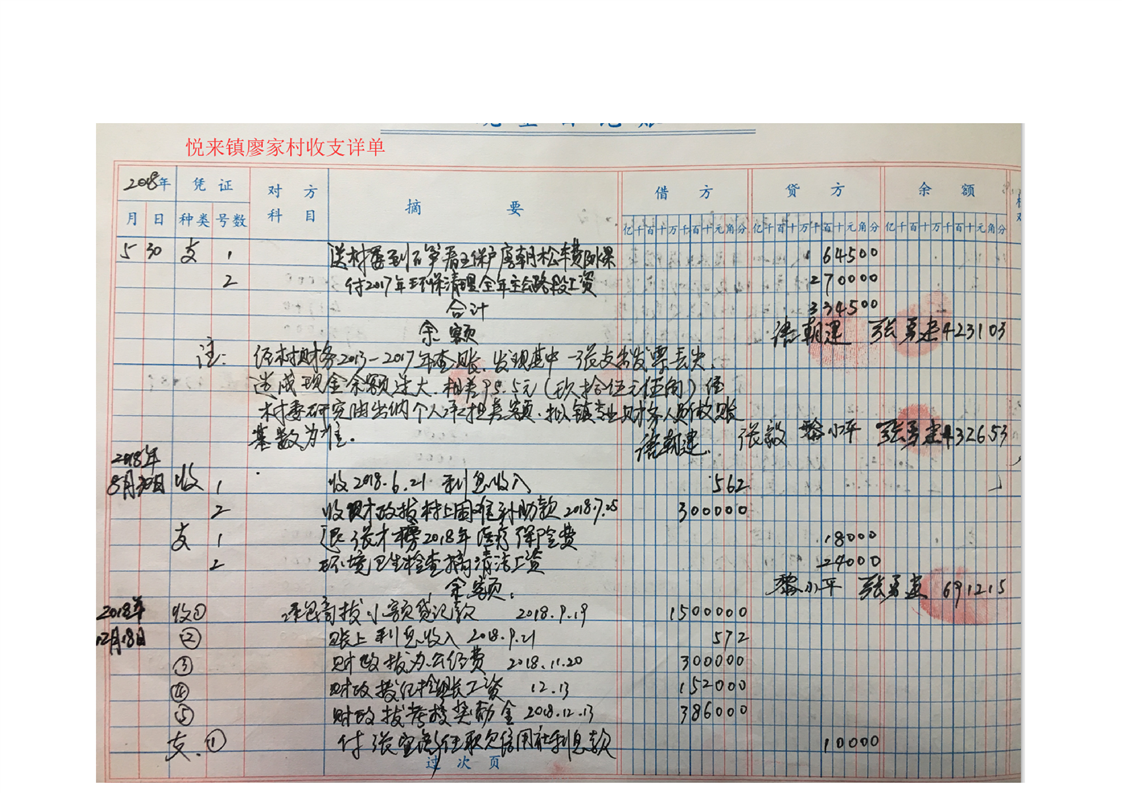 悦来镇廖家村收支详单
2018年 凭证 对方科目 摘要 借方 贷方 余额
月 日 种类 号数 亿千百十万千百十元角分 亿千百十万千百十元角分 亿千百十万千百十元角分
5 30 支 1 送村 到石笋看五保户 朝松车费 64500
2 付2017年环保清理全年 公路段工资 270000
合计 334500
余额 张勇建 423103
注: 经村财务2013-2017年查账,发现其中一张支出发票丢失,
造成现金余额过大,相差95.5元(玖拾伍元伍角)经
村委研究由出纳个人承担差额,拟镇专业财务人员所收账
基数为准. 张毅 黎小平 张勇建 432653
2018年
8月30日 收 1 收2018.6.21 利息收入 562
2 收财政拨村上困难补助款 2018.7.25 300000
支 1 退张才 2018年医疗保险费 18000
2 环境卫生检查 清洁工资 24000
余额: 黎小平 张勇建 691215
2018年 收① 承包商拨小额贷记款 2018.9.19 1500000
12月18日 ② 账上利息收入 2018.9.21 572
③ 财政拨办公经费 2018.11.20 300000
④ 财政拨 工资 12.13 152000
⑤ 财政拨考核奖励金 2018.12.13 386000
支 ① 付张 任职欠信用社利息款 10000
过次页